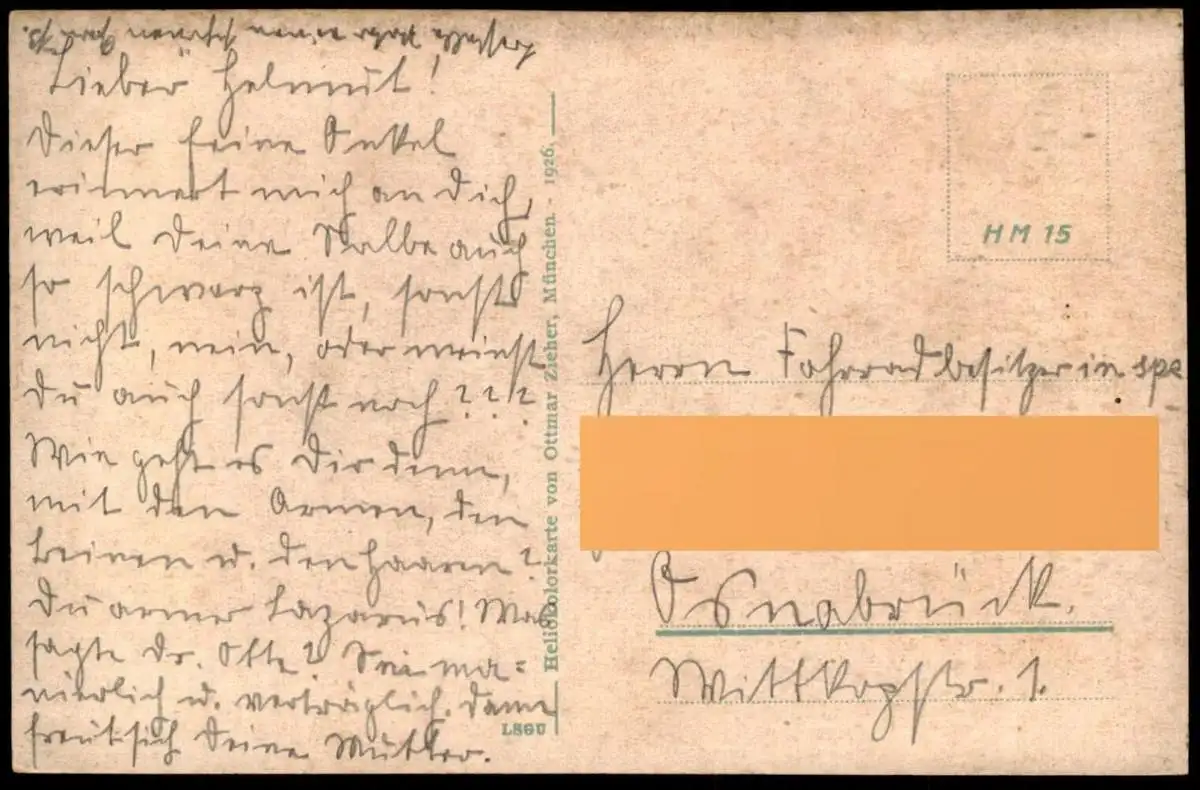 Lieber Helmut!
Dieser feine Onkel
erinnert mich an Dich,
weil Deine Salbe auch
so schwarz ist, sonst
nicht, nein, oder meinst
Du auch sonst noch???
Wie geht es Dir denn,
mit den Armen, den
Beinen u. den Haaren?
Du armer Lazarus! Was
sagte Dr. Otte? Sei ma=
nierlich u. verträglich. Dann
freut sich Deine Mutter.
bestelle einen schönen
Heliokolorkarte von Ottmar Zieher, München. - 1926.
L8GU
HM 15
Herrn Fahrradbesitzer in spe
Osnabrück.
Wittkopstr. 1.